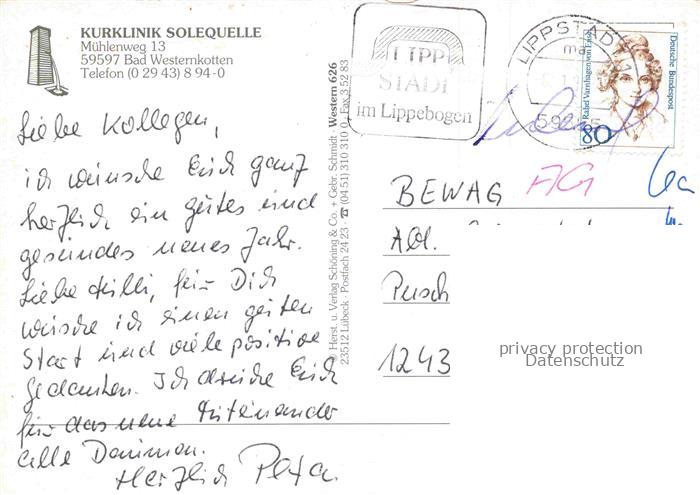 KURKLINIK SOLEQUELLE
Mühlenweg 13
59597 Bad Westernkotten
Telefon (0 29 43) 8 94-0
Liebe Kollegen,
ich wünsche Euch ganz
herzlich ein gutes und
gesundes neues Jahr.
Liebe Hilli, für Dich
wünsche ich einen guten
Start und viele positive
Gedanken. Ich drücke Euch
für das neue Miteinander
alle Daumen.
Herzlich Petra.
© Herst. u. Verlag Schöning & Co. + Gebr. Schmidt · Western 626
23512 Lübeck · Postfach 24 23 · ☎ (04 51) 310 310 · Fax 3 52 83
LIPP
STADT
im Lippebogen
LIPPSTADT 1
ma
59
Deutsche Bundespost
Rahel Varnhagen von Ense
80
BEWAG AG
Abt.
Pusch
1243
privacy protection
Datenschutz